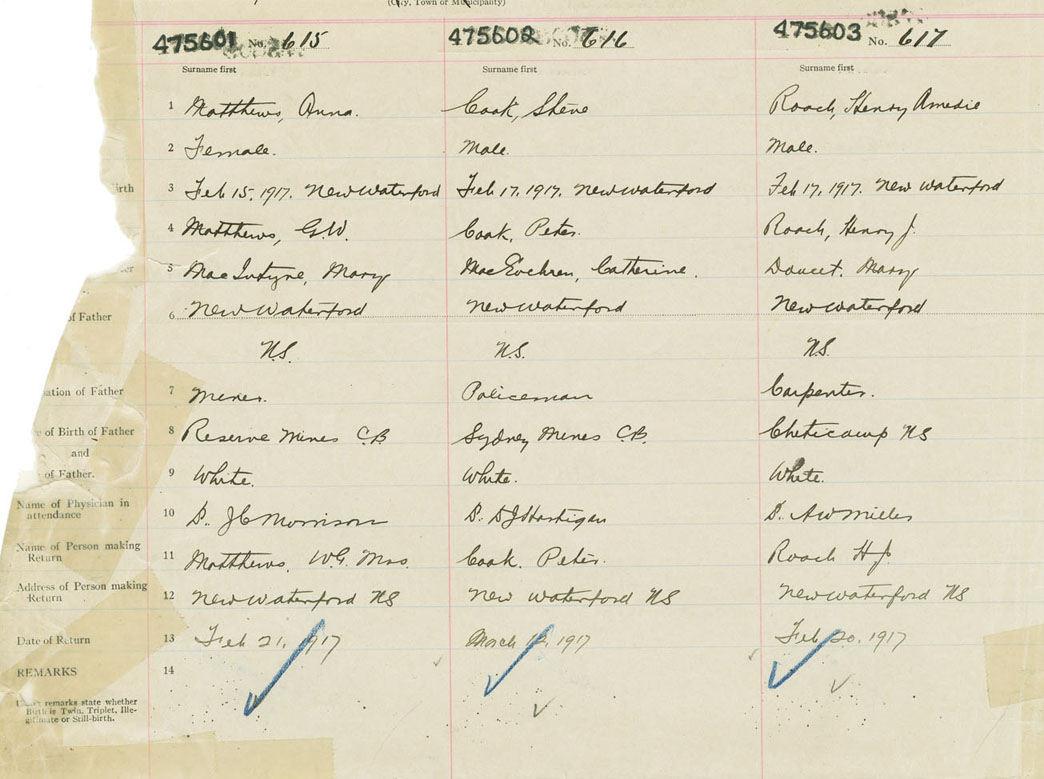 (City, Town or Municipality)
475601 No. 615
475602 No. 616
475603 No. 617
Surname first
Surname first
Surname first
1 Matthews, Anna.
Cook, Steve
Roach, Henry Amedie
2 Female.
Male.
Male.
irth 3 Feb 15, 1917. New Waterford
Feb 17, 1917. New Waterford
Feb 17, 1917. New Waterford
4 Matthews, G.W.
Cook, Peter.
Roach, Henry J.
er 5 MacIntyre, Mary
MacEachren, Catherine.
Doucet, Mary
of Father 6 New Waterford
New Waterford
New Waterford
N.S.
N.S.
N.S.
ation of Father 7 Miner.
Policeman
Carpenter.
e of Birth of Father 8 Reserve Mines C.B
Sydney Mines C.B.
Cheticamp NS
and
of Father. 9 White.
White.
White.
Name of Physician in
attendance 10 D. J C Morrison
D. D J Hartigan
D. A W Miller
Name of Person making
Return 11 Matthews, W.G. Mrs.
Cook. Peter.
Roach H J.
Address of Person making
Return 12 New Waterford NS
New Waterford NS
New Waterford NS
Date of Return 13 Feb 21, 1917
March 12, 1917
Feb 20, 1917
REMARKS 14
remarks state whether
Birth is Twin, Triplet, Ille-
gitimate or Still-birth.